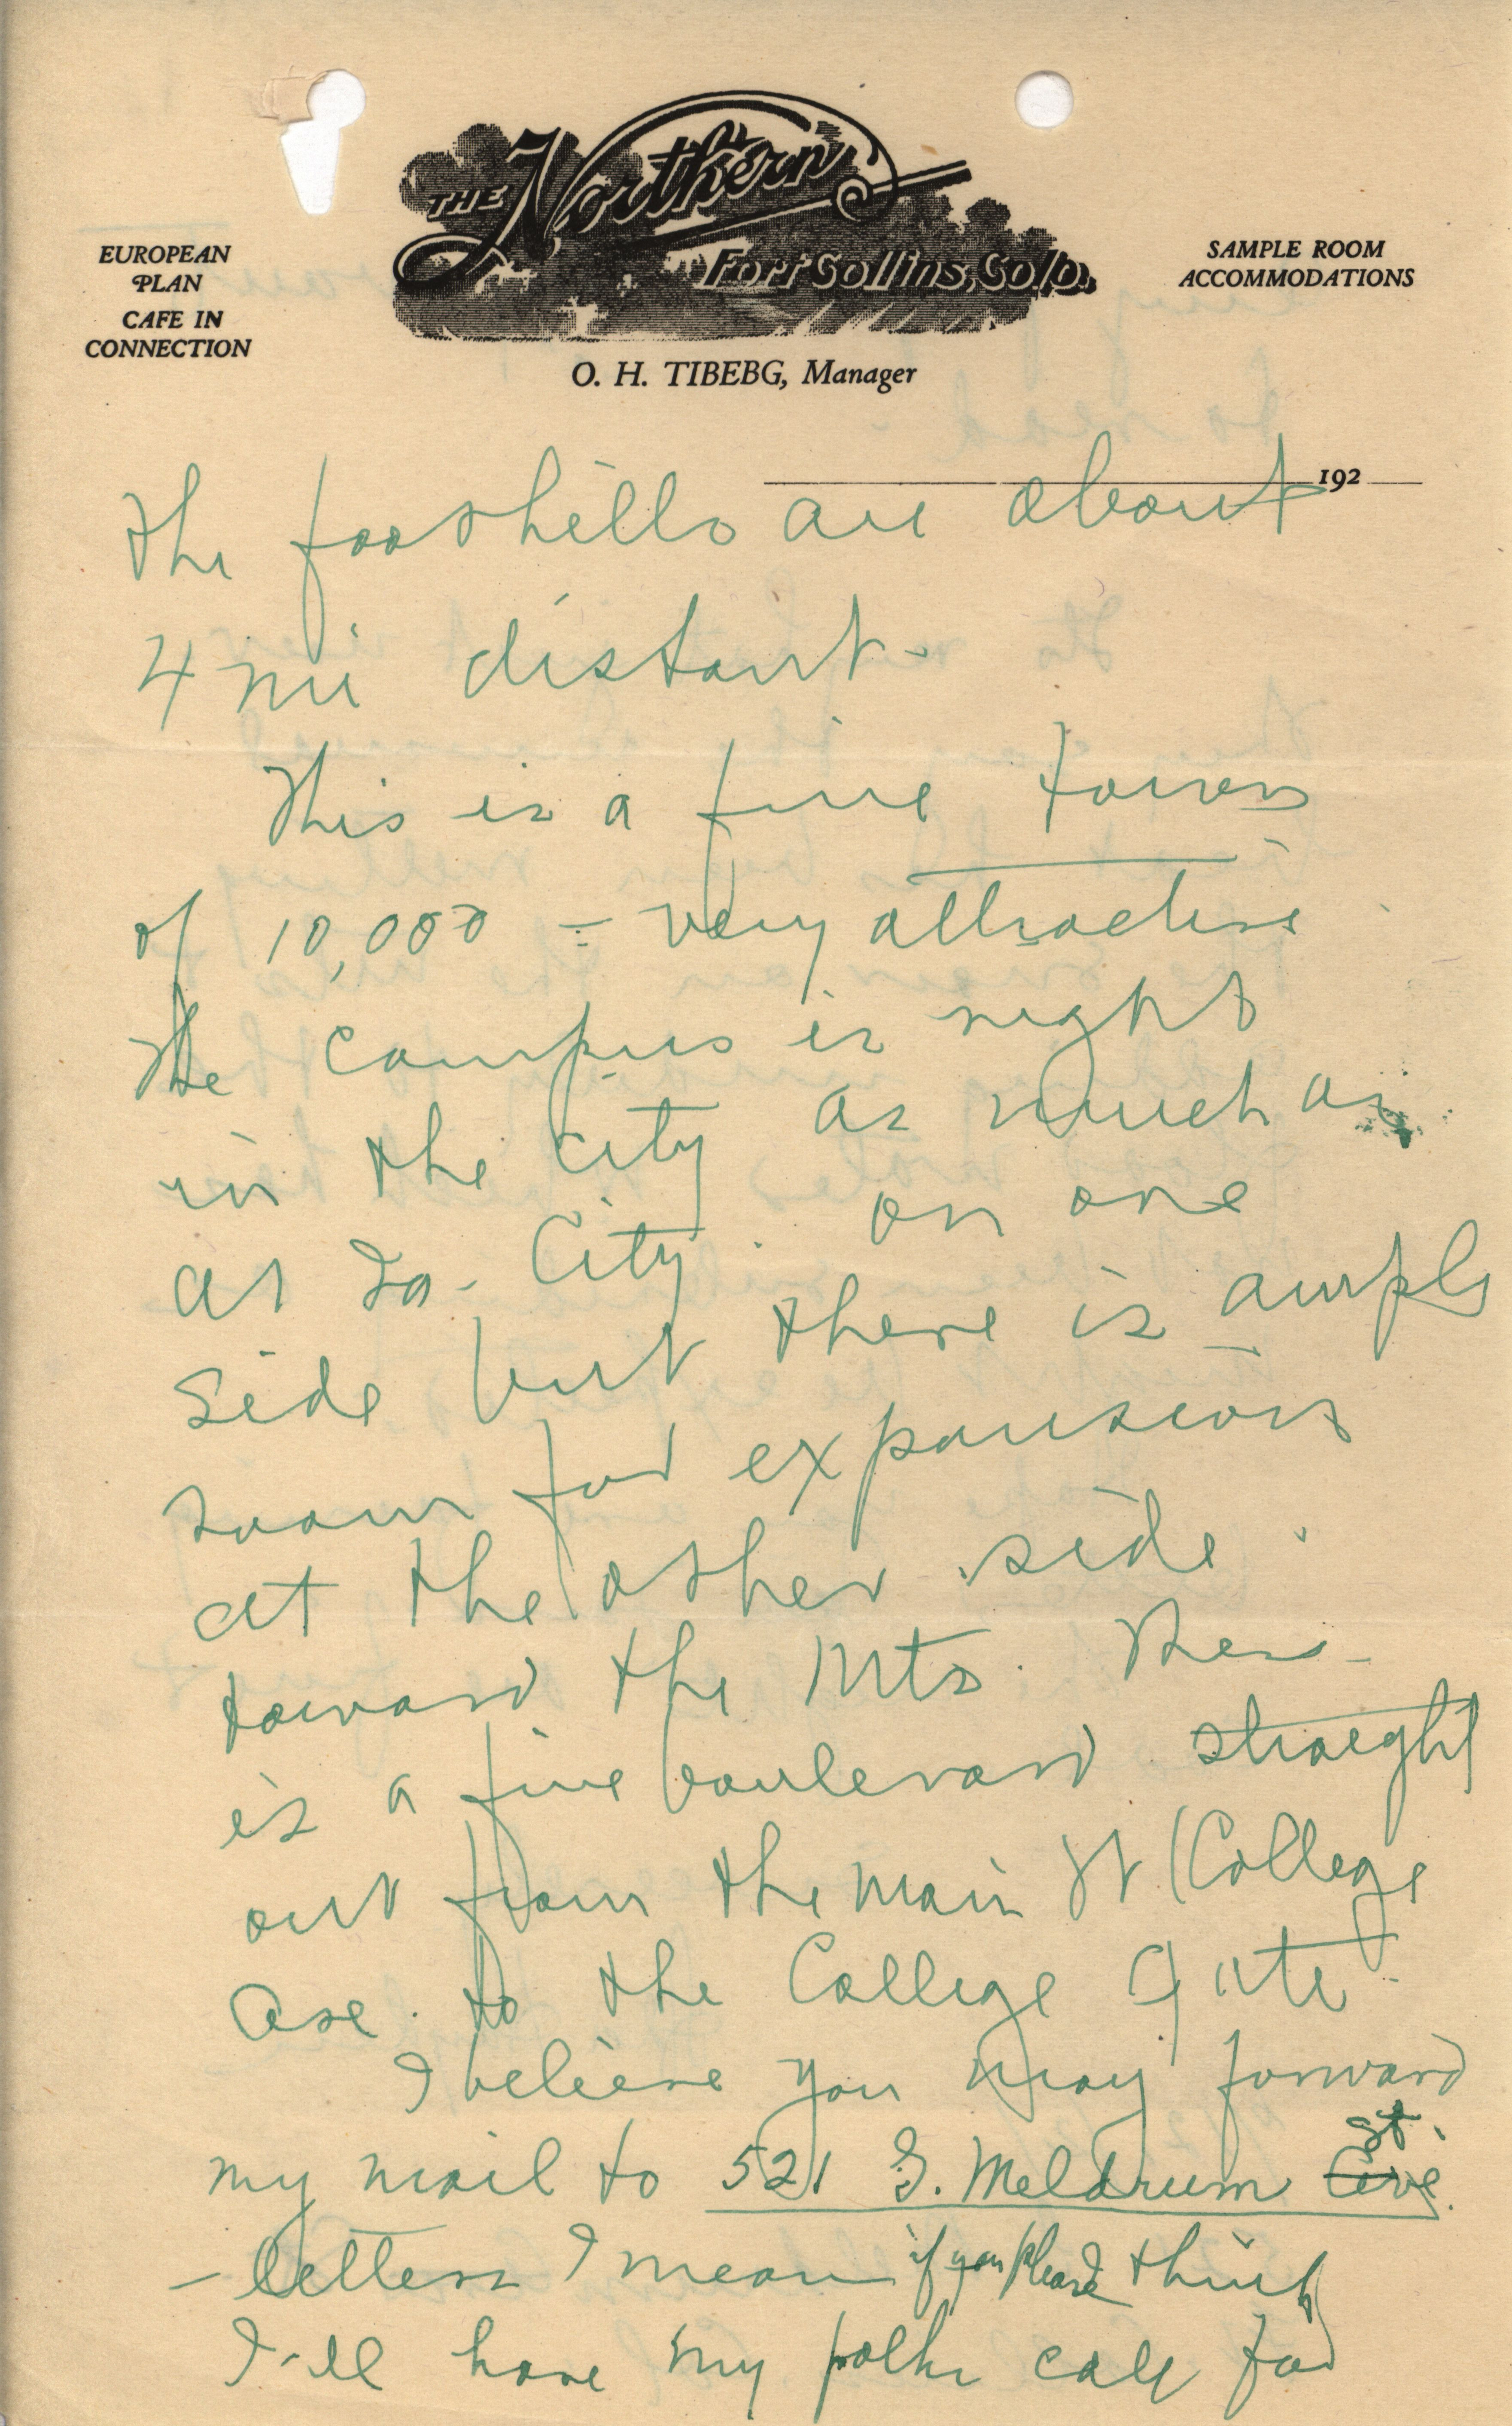 THE Northern
Fort Collins, Colo.
EUROPEAN
PLAN
CAFE IN
CONNECTION
SAMPLE ROOM
ACCOMMODATIONS
O. H. TIBEBG, Manager
192
the foothills are about
4 mi distant.
This is a fine town
of 10,000 - very attractive.
The campus is right
in the city as much as
at Ia. City. on one
side but there is ample
room for expansion
at the other side.
toward the Mts. There
is a fine boulevard straight
out from the main St (College
Ave. to the College Gate.
I believe you may forward
my mail to 521 S. Meldrum Ave. St.
- letters I mean if you please think
I'll have my folks call for